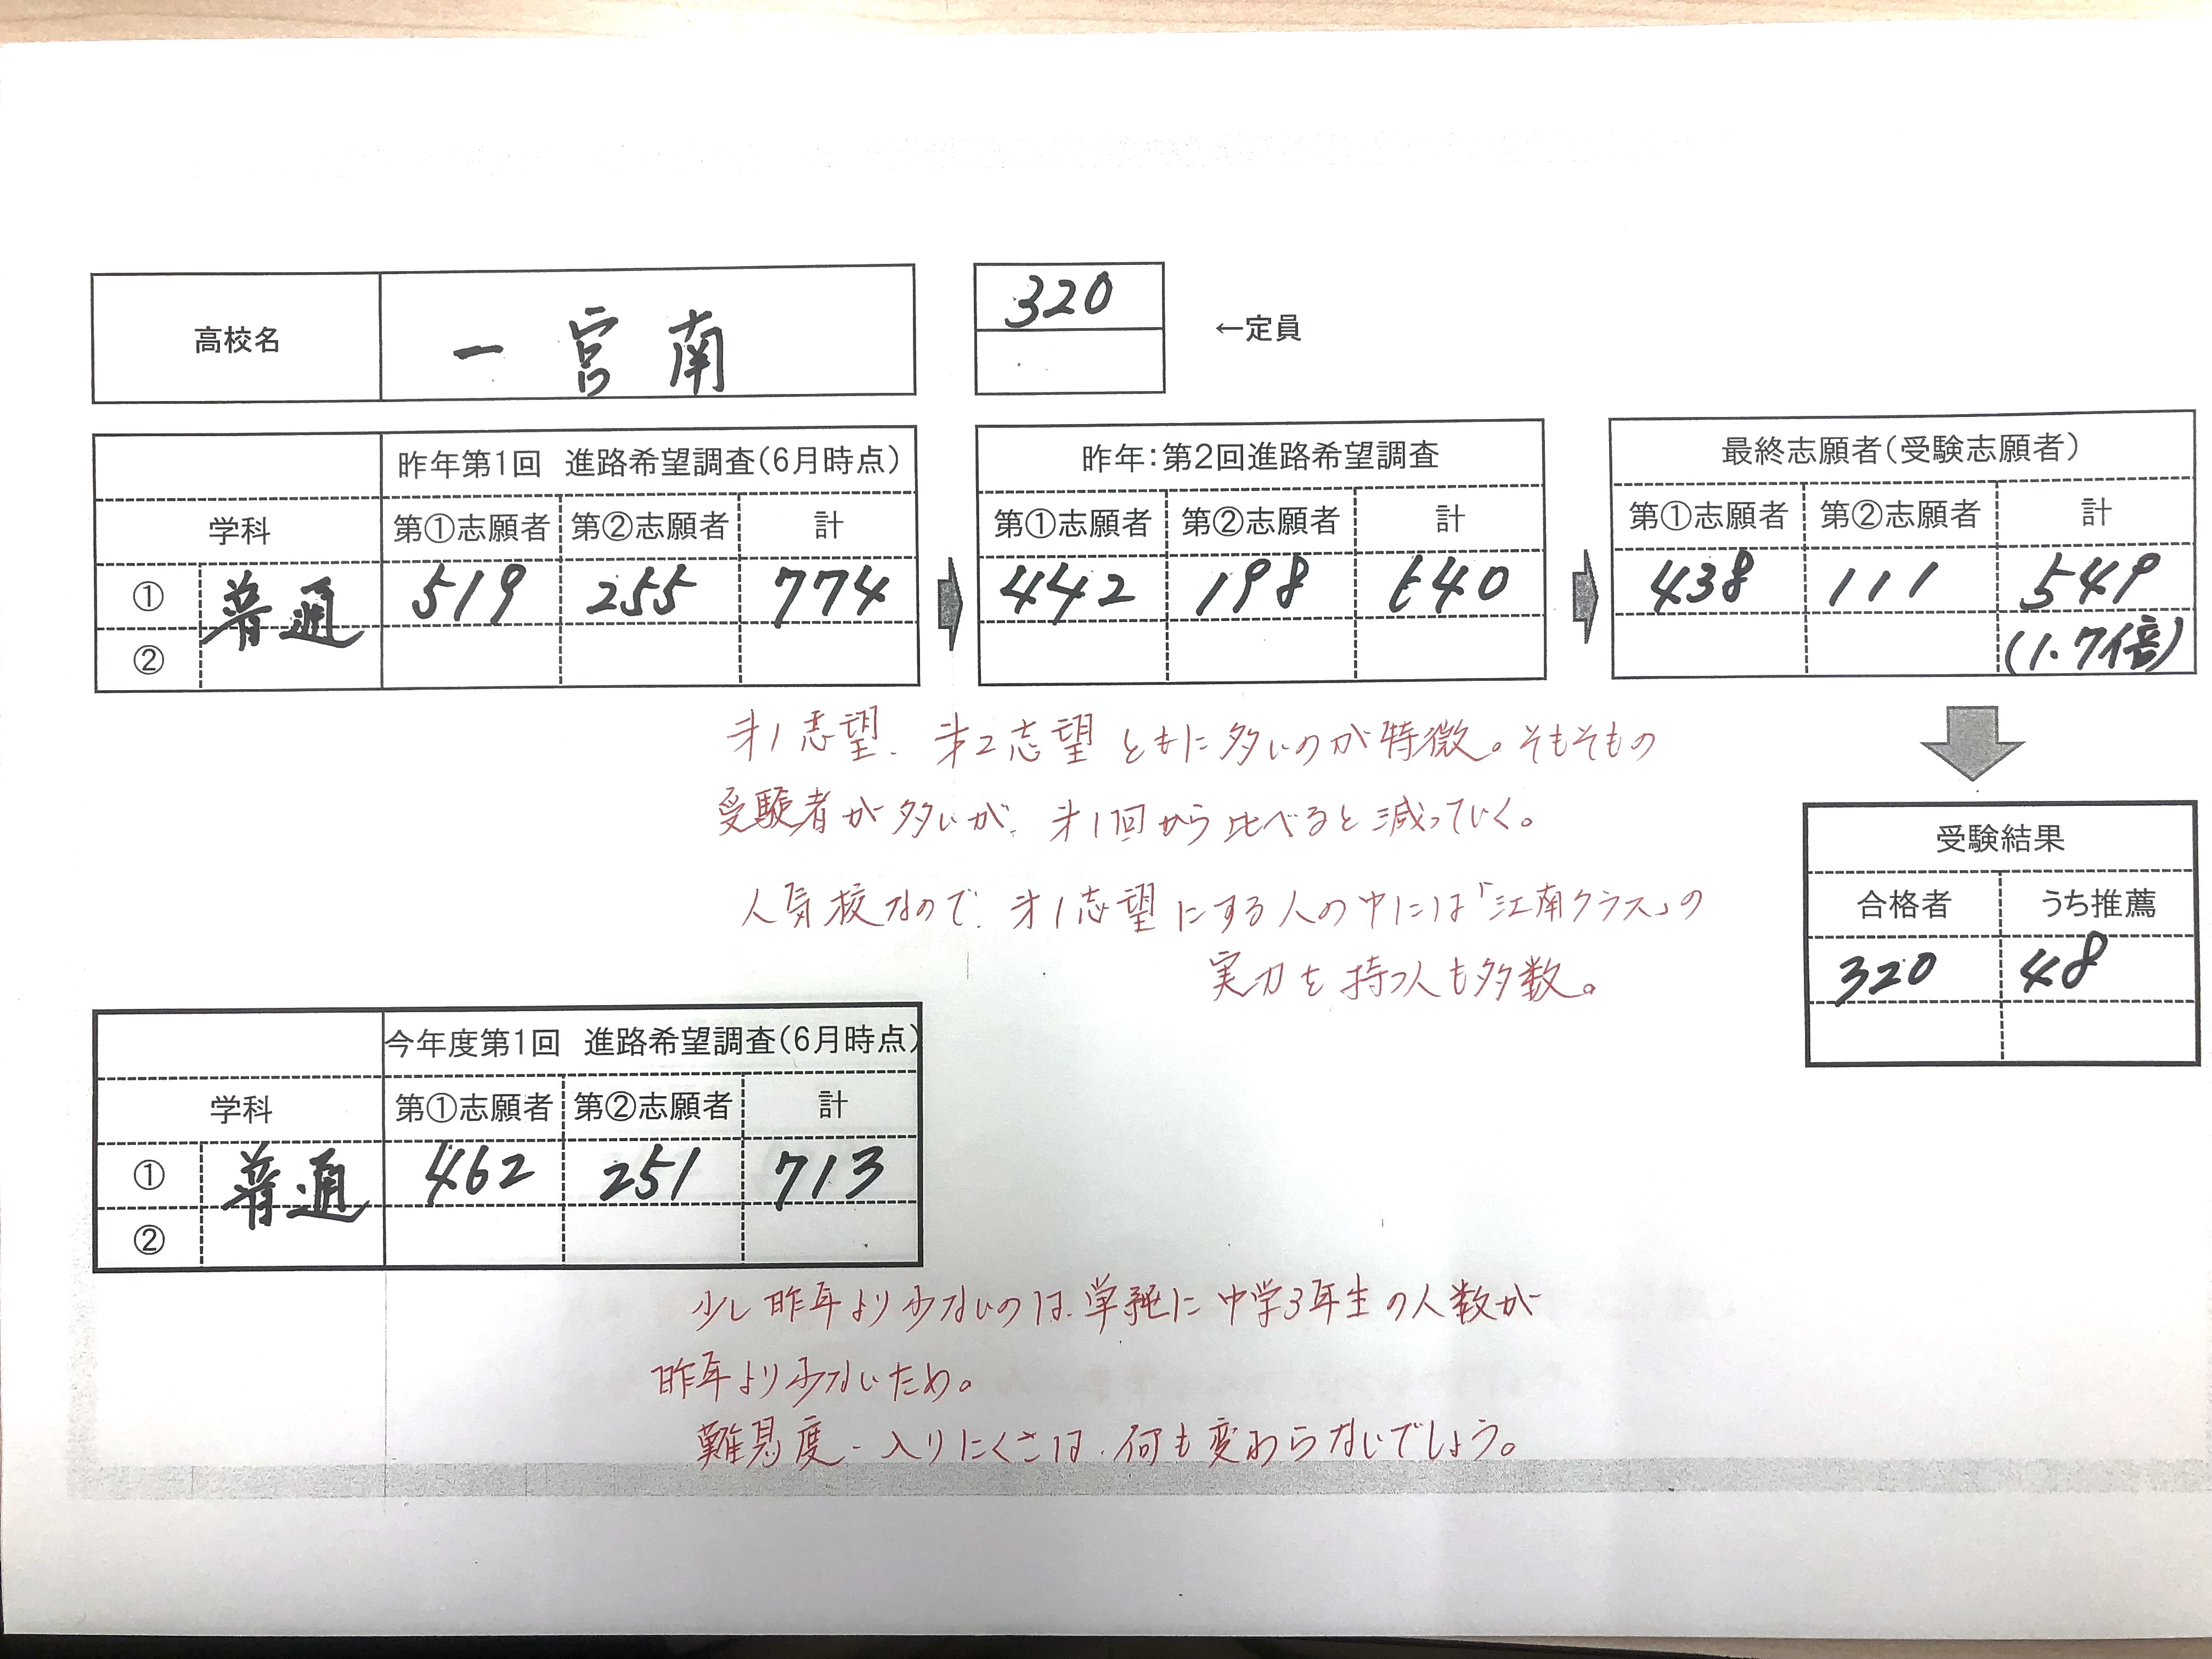 高校名 一宮南 320 ←定員
昨年第1回 進路希望調査(6月時点)
学科 第①志願者 第②志願者 計
① 普通 519 255 774
②
昨年:第2回進路希望調査
第①志願者 第②志願者 計
442 198 640
最終志願者(受験志願者)
第①志願者 第②志願者 計
438 111 549
(1.7倍)
才1志望、才2志望ともに多いのが特徴。そもそもの
受験者が多いが、才1回から比べると減っていく。
人気校なので、才1志望にする人の中には「江南クラス」の
実力を持つ人も多数。
受験結果
合格者 うち推薦
320 48
今年度第1回 進路希望調査(6月時点)
学科 第①志願者 第②志願者 計
① 普通 462 251 713
②
少し昨年より少ないのは、単純に中学3年生の人数が
昨年より少ないため。
難易度・入りにくさは、何も変わらないでしょう。